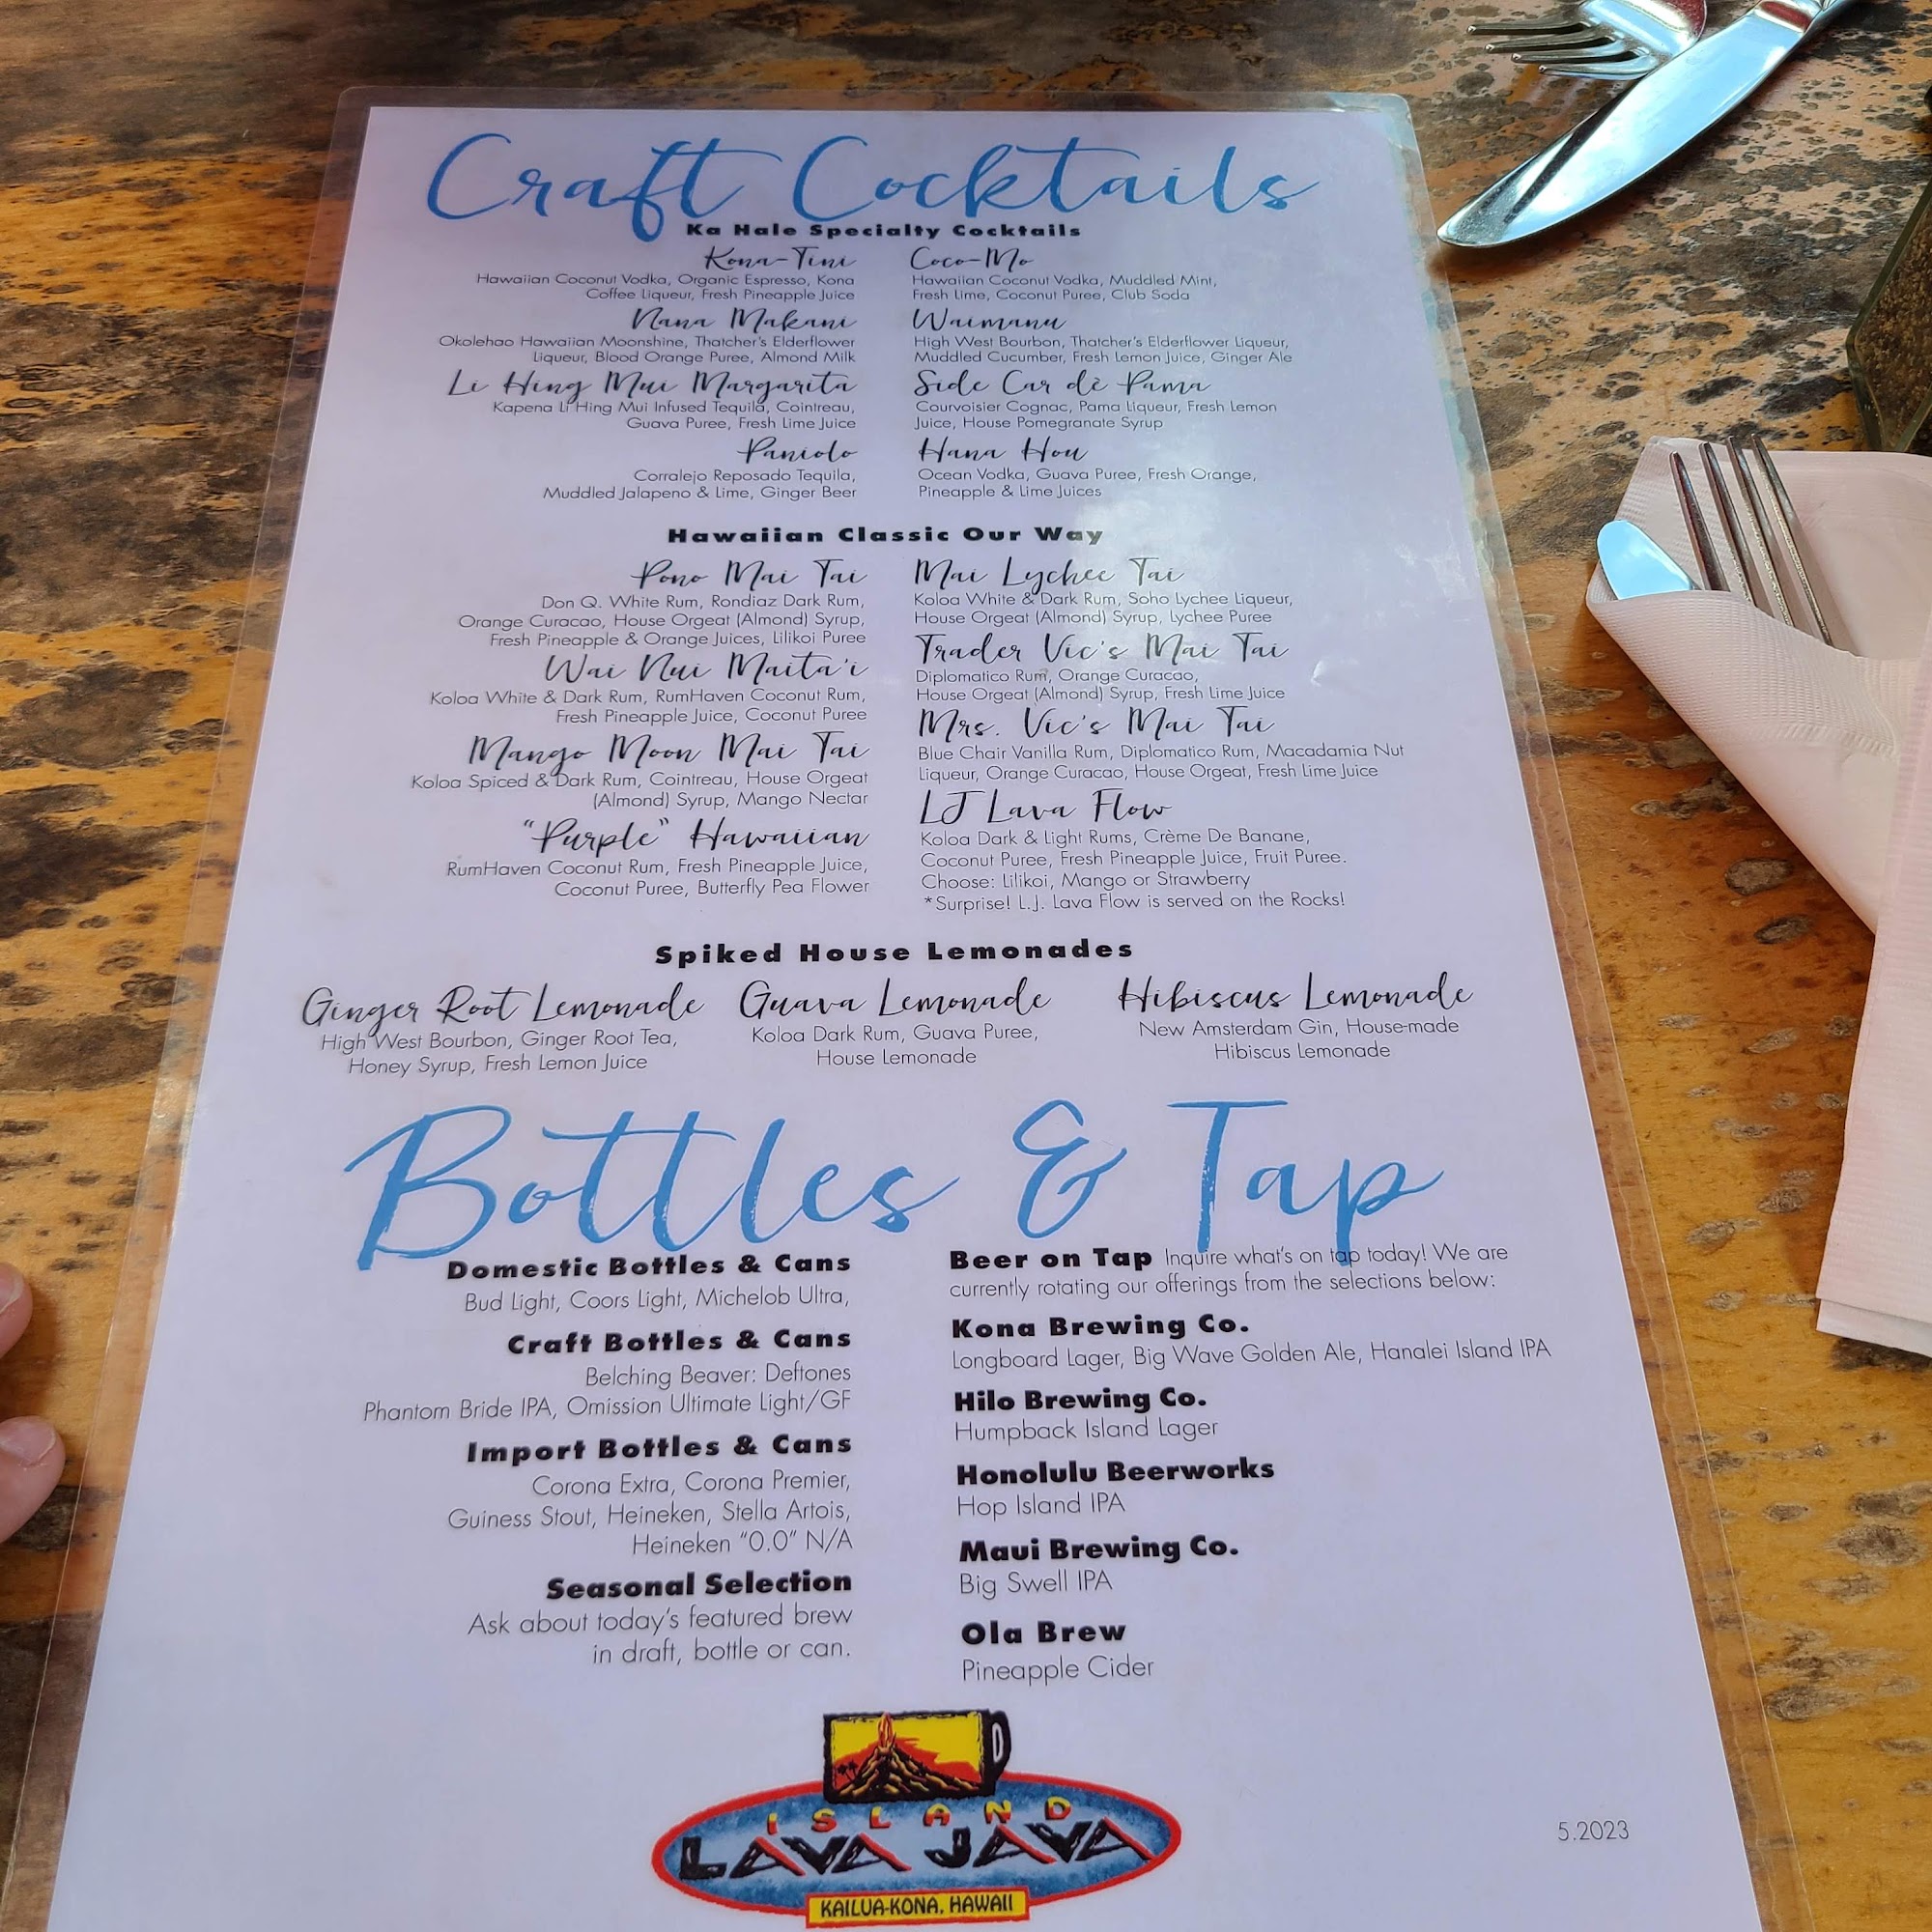 Craft Cocktails
Ka Hale Specialty Cocktails
Kona-Tini
Hawaiian Coconut Vodka, Organic Espresso, Kona
Coffee Liqueur, Fresh Pineapple Juice
Nana Makani
Okolehao Hawaiian Moonshine, Thatcher's Elderflower
Liqueur, Blood Orange Puree, Almond Milk
Li Hing Mui Margarita
Kapena Li Hing Mui Infused Tequila, Cointreau,
Guava Puree, Fresh Lime Juice
Paniolo
Corralejo Reposado Tequila,
Muddled Jalapeno & Lime, Ginger Beer
Coco-Mo
Hawaiian Coconut Vodka, Muddled Mint,
Fresh Lime, Coconut Puree, Club Soda
Waimanu
High West Bourbon, Thatcher's Elderflower Liqueur,
Muddled Cucumber, Fresh Lemon Juice, Ginger Ale
Side Car dè Pama
Courvoisier Cognac, Pama Liqueur, Fresh Lemon
Juice, House Pomegranate Syrup
Hana Hou
Ocean Vodka, Guava Puree, Fresh Orange,
Pineapple & Lime Juices
Hawaiian Classic Our Way
Pono Mai Tai
Don Q. White Rum, Rondiaz Dark Rum,
Orange Curacao, House Orgeat (Almond) Syrup,
Fresh Pineapple & Orange Juices, Lilikoi Puree
Wai Nui Maita'i
Koloa White & Dark Rum, RumHaven Coconut Rum,
Fresh Pineapple Juice, Coconut Puree
Mango Moon Mai Tai
Koloa Spiced & Dark Rum, Cointreau, House Orgeat
(Almond) Syrup, Mango Nectar
"Purple" Hawaiian
RumHaven Coconut Rum, Fresh Pineapple Juice,
Coconut Puree, Butterfly Pea Flower
Mai Lychee Tai
Koloa White & Dark Rum, Soho Lychee Liqueur,
House Orgeat (Almond) Syrup, Lychee Puree
Trader Vic's Mai Tai
Diplomatico Rum, Orange Curacao,
House Orgeat (Almond) Syrup, Fresh Lime Juice
Mrs. Vic's Mai Tai
Blue Chair Vanilla Rum, Diplomatico Rum, Macadamia Nut
Liqueur, Orange Curacao, House Orgeat, Fresh Lime Juice
LJ Lava Flow
Koloa Dark & Light Rums, Crème De Banane,
Coconut Puree, Fresh Pineapple Juice, Fruit Puree.
Choose: Lilikoi, Mango or Strawberry
*Surprise! L.J. Lava Flow is served on the Rocks!
Spiked House Lemonades
Ginger Root Lemonade
High West Bourbon, Ginger Root Tea,
Honey Syrup, Fresh Lemon Juice
Guava Lemonade
Koloa Dark Rum, Guava Puree,
House Lemonade
Hibiscus Lemonade
New Amsterdam Gin, House-made
Hibiscus Lemonade
Bottles & Tap
Domestic Bottles & Cans
Bud Light, Coors Light, Michelob Ultra,
Craft Bottles & Cans
Belching Beaver: Deftones
Phantom Bride IPA, Omission Ultimate Light/GF
Import Bottles & Cans
Corona Extra, Corona Premier,
Guiness Stout, Heineken, Stella Artois,
Heineken "0.0" N/A
Seasonal Selection
Ask about today's featured brew
in draft, bottle or can.
Beer on Tap Inquire what's on tap today! We are
currently rotating our offerings from the selections below:
Kona Brewing Co.
Longboard Lager, Big Wave Golden Ale, Hanalei Island IPA
Hilo Brewing Co.
Humpback Island Lager
Honolulu Beerworks
Hop Island IPA
Maui Brewing Co.
Big Swell IPA
Ola Brew
Pineapple Cider
ISLAND
LAVA JAVA
KAILUA-KONA, HAWAII
5.2023